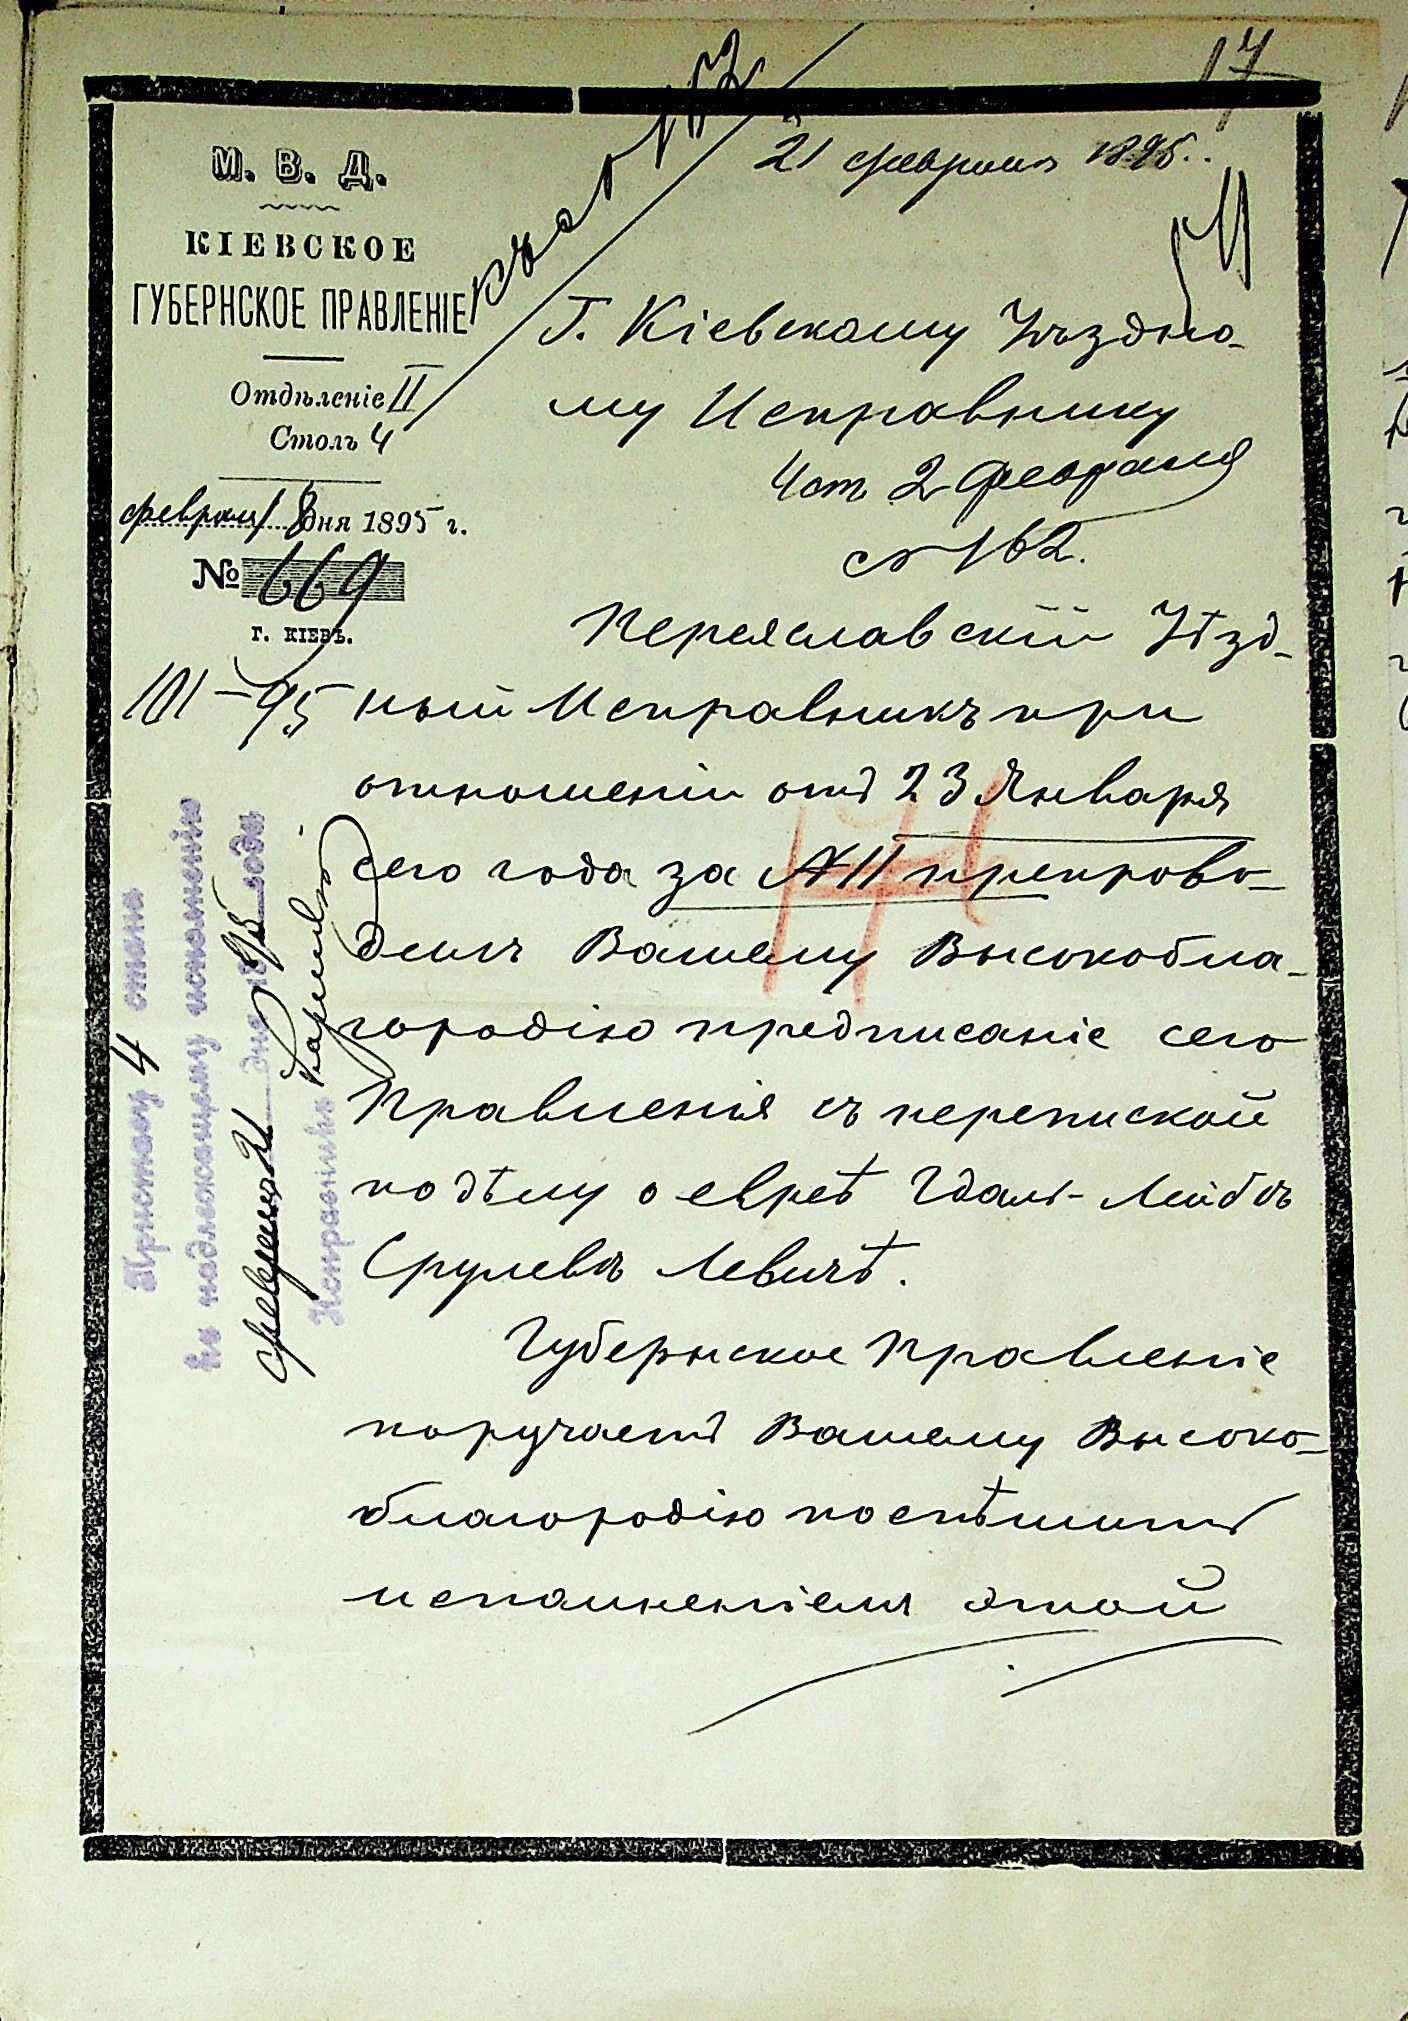 17
21 февраля 1895.
М. В. Д.
КІЕВСКОЕ
ГУБЕРНСКОЕ ПРАВЛЕНІЕ
Отдѣленіе II
Столъ 4
февраля 18 дня 1895 г.
№ 669
Г. КІЕВЪ.
101-95
Г. Кіевскому Уѣздно-
му Исправнику
4 ст 2 февраля
№ 162.
Переяславскій Уѣзд-
ный Исправникъ при
отношеніи отъ 23 Января
сего года за № 11 препрово-
дилъ Вашему Высокобла-
городію предписаніе сего
Правленія съ перепиской
по дѣлу о евреѣ Гдаль-Лейбѣ
Срулевѣ Левичѣ.
Губернское Правленіе
поручаетъ Вашему Высоко-
благородію поспѣшить
исполненіемъ этой
Приставу 4 стана
къ надлежащему исполненію
февраля 21 дня 1895 года
Исправникъ